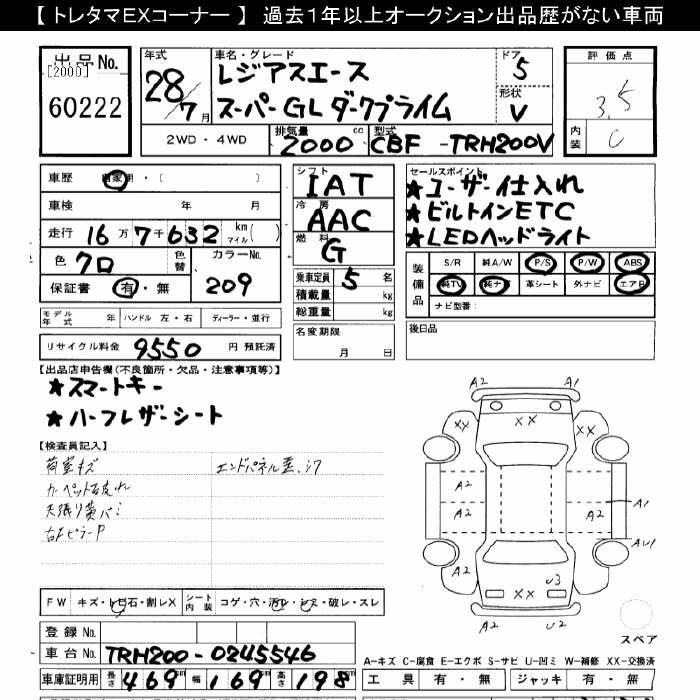 【 トレタマEXコーナー 】 過去1年以上オークション出品歴がない車両
出品No.
【2000】
60222
年式
28/7月
車名・グレード
レジアスエース
スーパーGLダークプライム
ドア
5
形状
V
評価点
3.5
内装
C
2WD・4WD
排気量
2000 cc
型式
CBF -TRH200V
車歴
自家用・〔 〕
車検 年 月
走行 16万7千632 km マイル( )
色 クロ
色替
カラーNo.
209
保証書 有・無
シフト
IAT
冷房
AAC
燃料
G
乗車定員 5 名
積載量 kg
総重量 kg
セールスポイント
★ユーザー仕入れ
★ビルトインETC
★LEDヘッドライト
装備品
S/R 純A/W P/S P/W ABS
純TV 純ナビ 革シート 外ナビ エアB
ナビ型番:
モデル年式 年 ハンドル 左・右 ディーラー・並行
名変期限
月 日
後日品
リサイクル料金 9550 円 預託済
【出品店申告欄(不良箇所・欠品・注意事項等)】
★スマートキー
★ハーフレザーシート
【検査員記入】
荷室キズ
天張り
右Fピラー
A2 A1
XX XX XX
A2 A2
A2 A2 A1
A2 U3 AU1
XX
A2 U2
FW キズ・トビ石・割レX
シート内装 コゲ・穴・汚レ・シミ・破レ・スレ
スペア
登録No.
車台No. TRH200-0245546
A―キズ C―腐食 E―エクボ S―サビ U―凹ミ W―補修 XX―交換済
車庫証明用 長さ 469 cm 幅 169 cm 高さ 198 cm
工具 有・無 ジャッキ 有・無